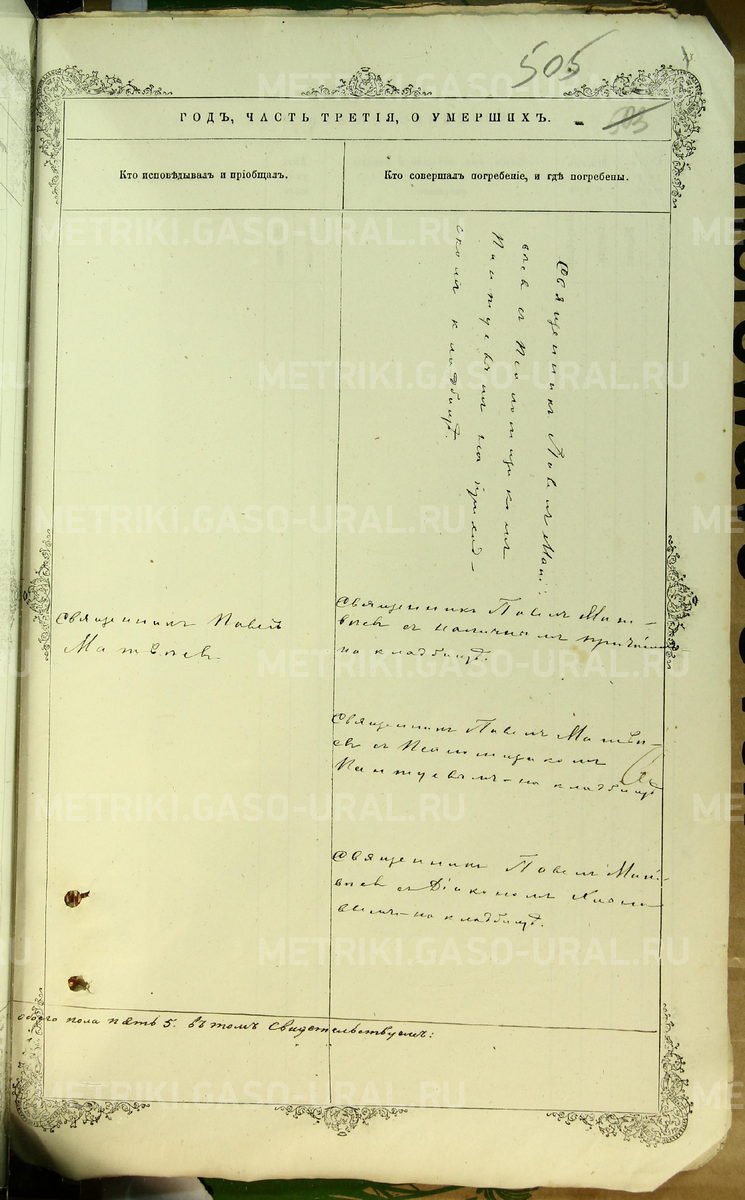 505
ГОДЪ, ЧАСТЬ ТРЕТІЯ, О УМЕРШИХЪ.
Кто исповѣдывалъ и пріобщалъ.
Кто совершалъ погребеніе, и гдѣ погребены.
Священникъ Павелъ Мат-
вѣевъ съ Псаломщикомъ
кладбищѣ.
Священникъ Павелъ
Матвѣевъ
Священникъ Павелъ Мат-
вѣевъ съ наличнымъ причтомъ
на кладбищѣ.
Священникъ Павелъ Матвѣ-
евъ съ Псаломщикомъ
на кладбищѣ
Священникъ Павелъ Мат-
вѣевъ съ Діакономъ
на кладбищѣ.
обоего пола пять 5. Въ томъ свидѣтельствуемъ:
METRIKI.GASO-URAL.RU